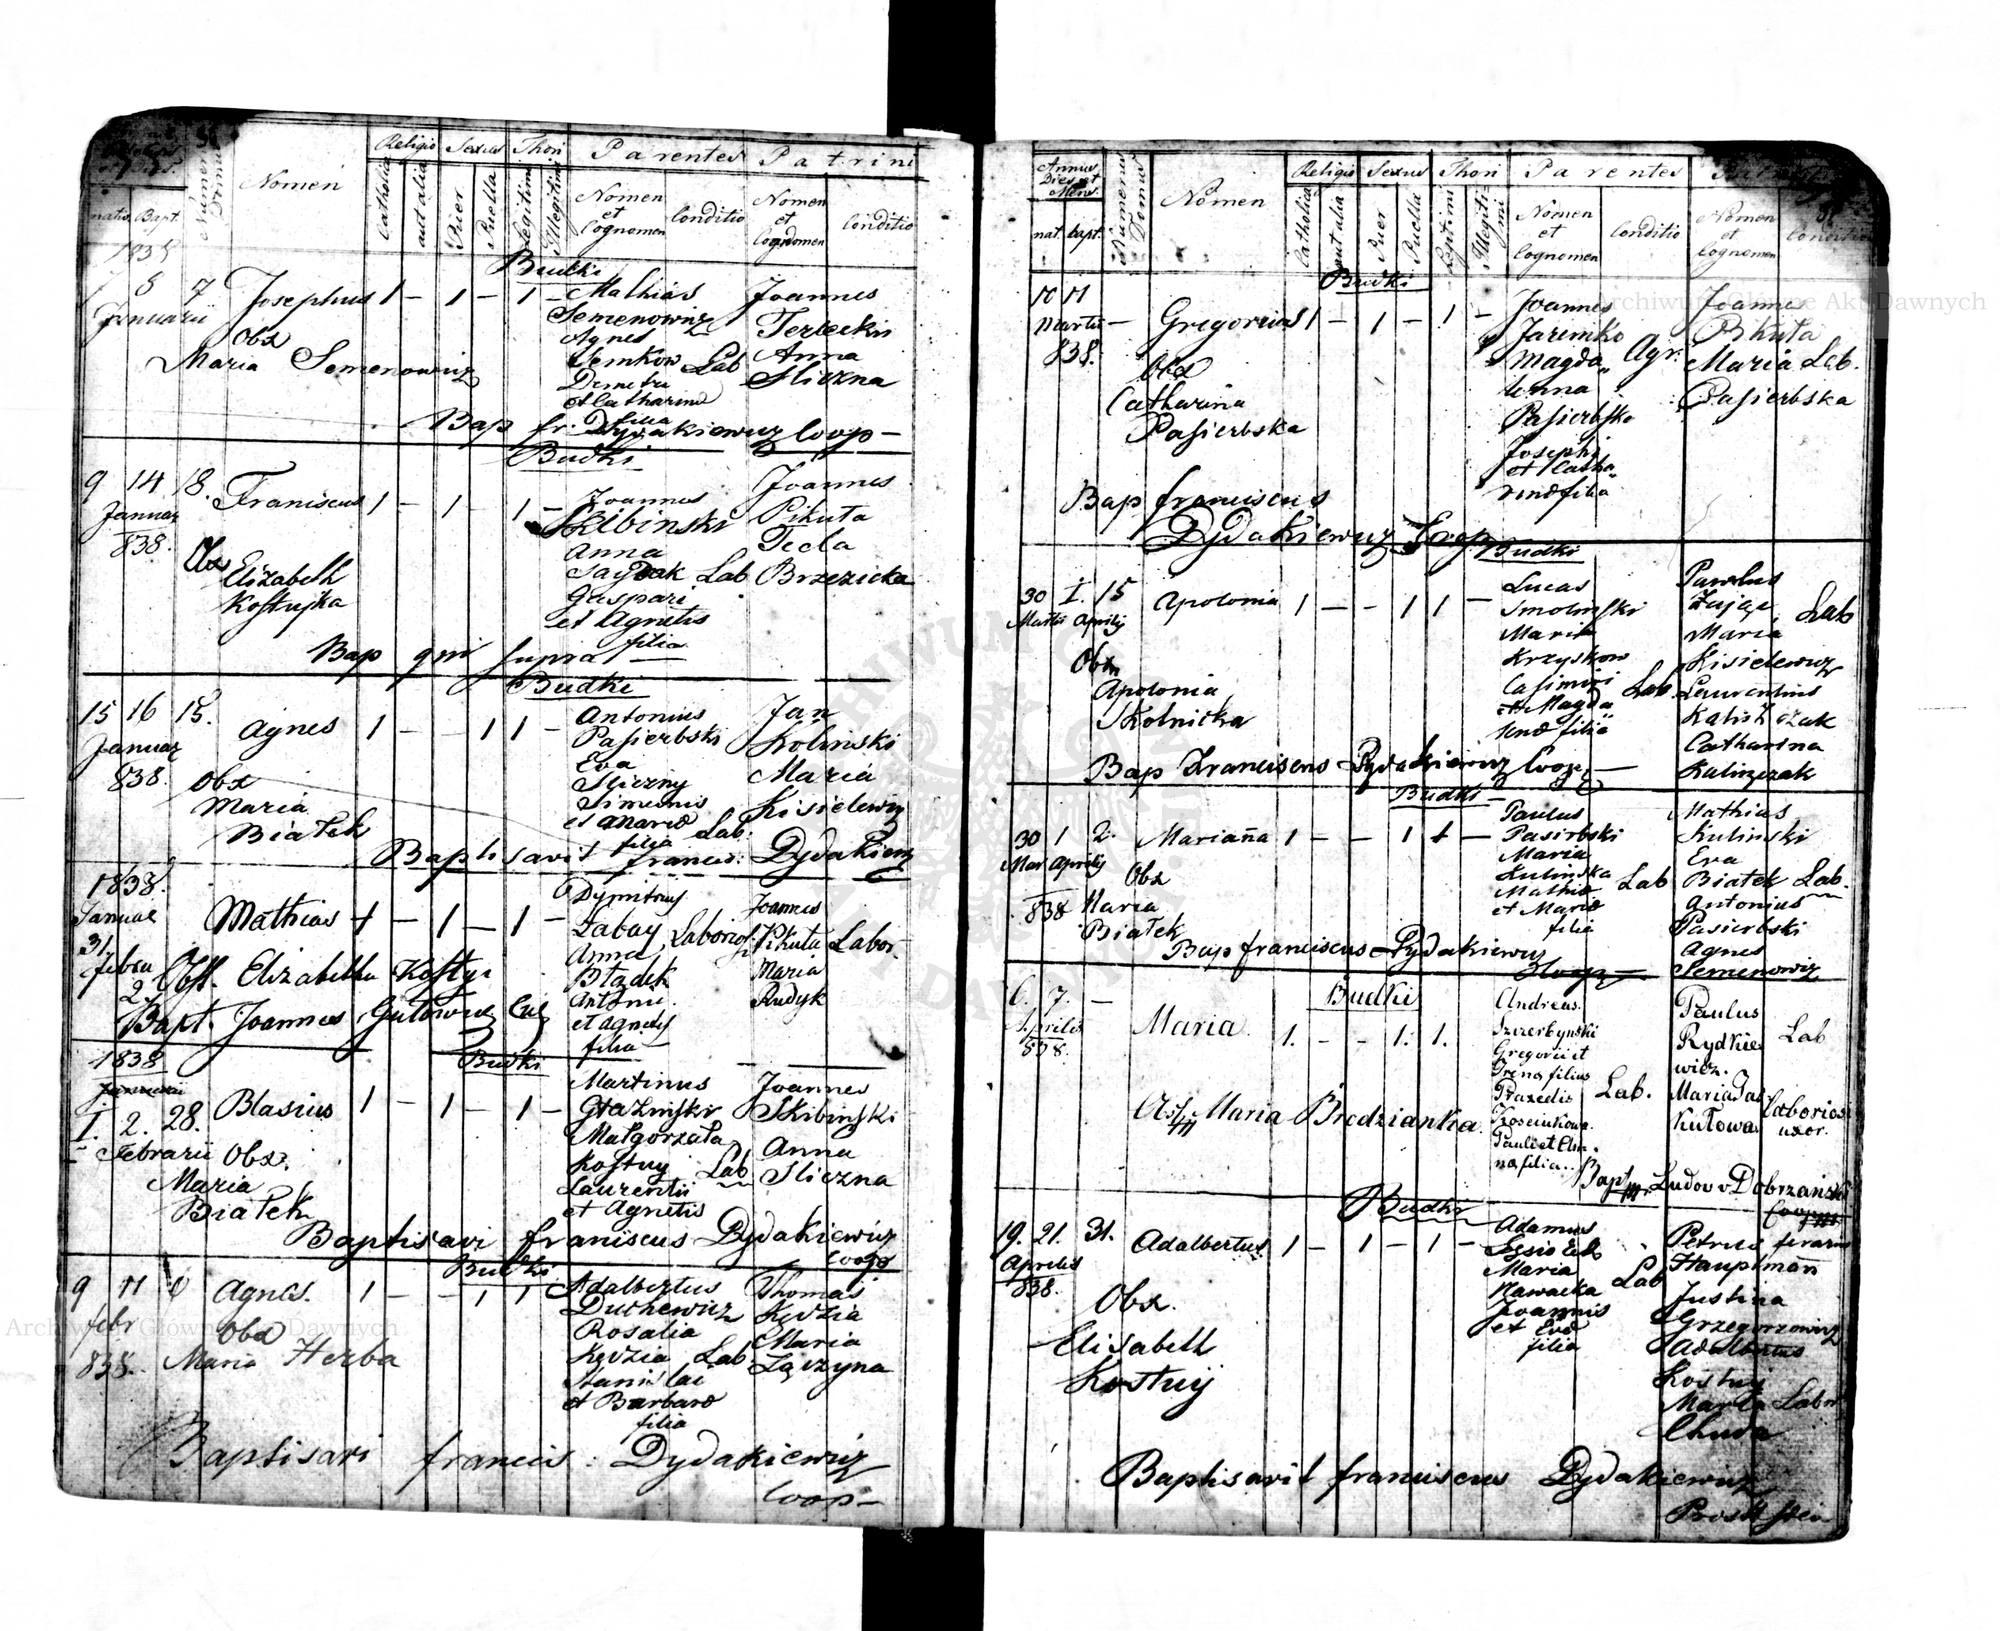 Nomen
Religio Sexus Thori Parentes Patrini
Catholica aut alia Puer Puella Legitimi Illegitimi
Nomen et Cognomen Conditio Nomen et Cognomen Conditio
natio. Bapt.
Budki
8 7 Josephus 1 – 1 – 1 – Mathias Joannes
Januarii Semenowicz Terlecki
Obx Agnes Anna
Maria Semenowicz Semkow Lab Śliczna
Demetri
et Catharina
filia
Bap fr. Dydakiewicz Coop –
Budki
9 14 18. Franiscus 1 – 1 – 1 – Joannes Joannes
Januar Skibinski Pikuta
838. Anna Tecla
Obx Elizabeth Sajdak Lab Brzezicka
Kostujka Gaspari
et Agnetis
filia
Bap qui supra
Budki
15 16 15. Agnes 1 – – 1 1 – Antonius Jan
Januar Pasierbski Kolinski
838. Obx Eva Maria
Maria Śliczny Kisielewicz
Białek Simeonis
et Maria Lab.
filia
Baptisavit francis: Dydakiewicz
1838. Dymitrus Joannes
Januar Mathias 1 – 1 – 1 – Labay Laborios. Pikuta Labor.
31. Anna Maria
febru Obst. Elizabetha Kostyi Błądek Rudyk
2. Antoni
Bapt. Joannes Gutowicz et Agnetis
filia
1838 Budki
I. 2. 28. Blasius 1 – 1 – 1 – Martinus Joannes
Februarii Obx. Głaźnifski Skibinski
Maria Małgorzata Anna
Białek Kostuy Lab Śliczna
Laurentii
et Agnetis
Baptisavi franiscus Dydakiewicz
Coop
Budki
9 11 6 Agnes. 1 – – 1 1 Adalbertus Thomas
febr Obx Duchewicz Kędzia
838. Maria Herba Rosalia Maria
Kędzia Lab Łączyna
Stanislai
et Barbara
filia
Baptisavi francis: Dydakiewicz
Coop –
Annus Dies et Mens. Numerus Domus Nomen Religio Sexus Thori Parentes
nat. bapt. Catholica aut alia Puer Puella Legitimi Illegitimi
Nomen et Cognomen Conditio Nomen et Cognomen Conditio
Budki
10 11 Gregorius 1 – 1 – 1 – Joannes Joannes
Martii – Jaremko Pikuta
838. Magda Agr. Maria Lab.
Obx lenna Pasierbska
Catharina Pasierbska
Pasierbska Josephi
et Catha
rina filia
Bap franciscus
Dydakiewicz Coop
Budki
30 I. 15 Apolonia 1 – – 1 1 – Lucas Paulus
Martii Aprilij Smolinski Zając Lab
Obx Maria Maria
Apolonia Krzyskow Kisielewicz
Skolnicka Casimiri Lab. Laurentius
et Magda Kaliszczak
lena filia Catharina
Kaliszczak
Bap Franciscus Dydakiewicz Coop –
Budki
30 1 2. Marianna 1 – – 1 1 – Paulus Mathias
Mar Aprilij Pasirbski Kulinski
Obx Maria Eva
838 Maria Kulinska Lab Białek Lab.
Białek Mathia Antonius
et Maria Pasierbski
filia Agnes
Semenowicz
Bap franciscus Dydakiewicz
Coop
6. 7. – Budki Andreas. Paulus
Aprilis Maria. 1. – – 1. 1. Szczerbynski Rydkie Lab
838. Gregorii et wicz.
Irena filius
Praxedis Lab. Maria Jał Laboriosi
Maria Brodzianka Kosciukowa. kułowa uxor.
Pauli et An
na filia.
Bapt Ludov Dobrzański
Coop
Budki
19. 21. 31. Adalbertus 1 – 1 – 1 – Adamus Petrus ferarius
Aprilis Hauptmann
838. Obx. Maria Lab Justina
Elisabeth Nawacka Grzegorzowicz
Kostuij Joannis Adalbertus
et Eva Kostuj
filia Marta Labor
Chuda
Baptisavit franciscus Dydakiewicz
Archiwum Główne Akt Dawnych
Archiwum Główne Akt Dawnych